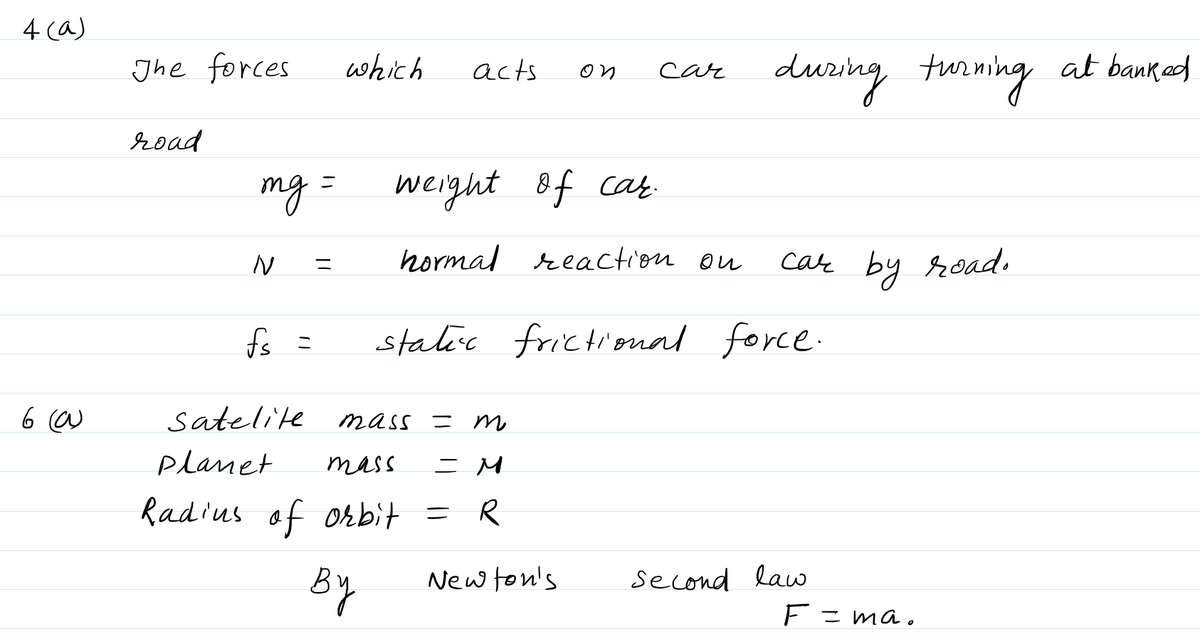 4 (a)
The forces which acts on car during turning at banked
road
mg = weight of car.
N = normal reaction on car by road.
fs = static frictional force.
6 (a) satelite mass = m
planet mass = M
Radius of orbit = R
By Newton's second law
F = ma.